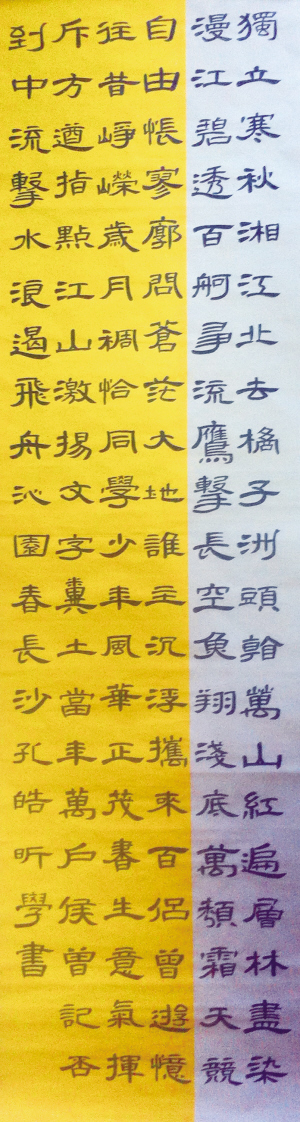 獨立寒秋湘江北去橘子洲頭看萬山紅遍層林盡染
漫江碧透百舸爭流鷹擊長空魚翔淺底萬類霜天競
自由悵寥廓問蒼茫大地誰主沉浮攜來百侶曾遊憶
往昔崢嶸歲月稠恰同學少年風華正茂書生意氣揮
斥方遒指點江山激揚文字糞土當年萬戶侯曾記否
到中流擊水浪遏飛舟沁園春長沙孔皓昕學書